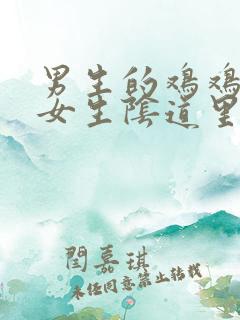 男生的鸡鸡
女生陰道里
閆嘉琪
未经同意禁止转载